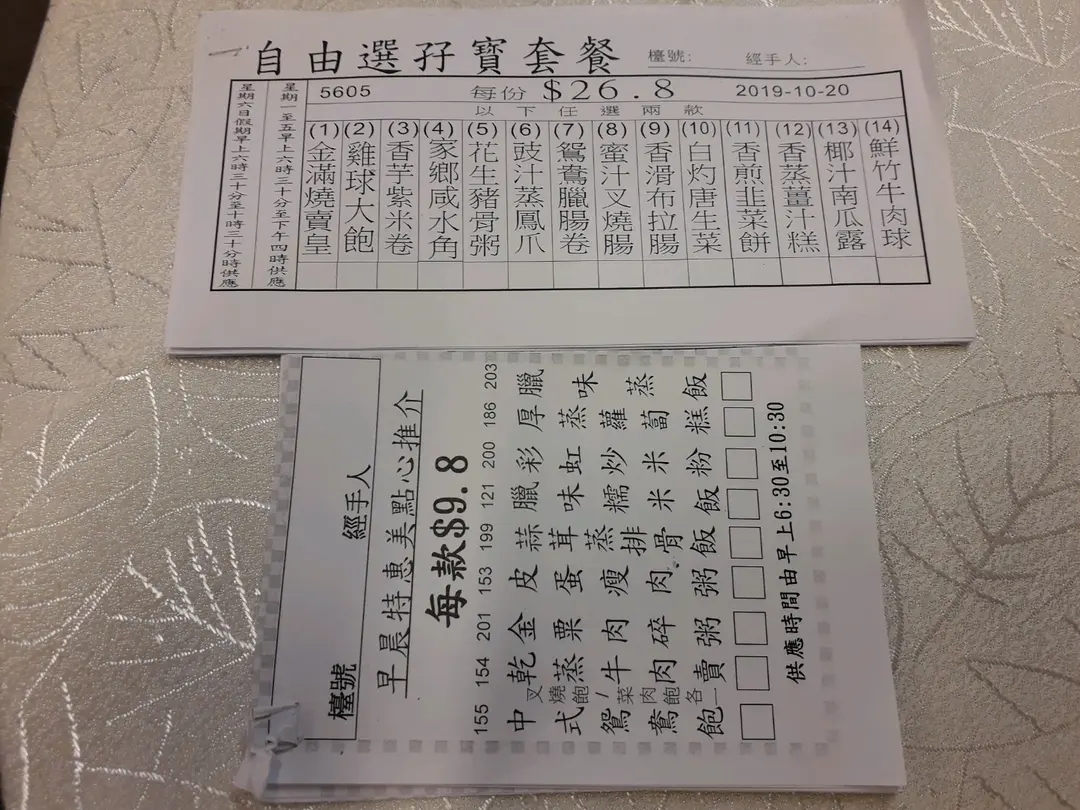 自由選孖寶套餐 檯號: 經手人:
5605 每份 $26.8 2019-10-20
以下任選兩款
星期六日假期早上六時三十分至十時三十分時供應
星期一至五早上六時三十分至下午四時供應
(1)金滿燒賣皇
(2)雞球大飽
(3)香芋紫米卷
(4)家鄉咸水角
(5)花生豬骨粥
(6)豉汁蒸鳳爪
(7)鴛鴦臘腸卷
(8)蜜汁叉燒腸
(9)香滑布拉腸
(10)白灼唐生菜
(11)香煎韭菜餅
(12)香蒸薑汁糕
(13)椰汁南瓜露
(14)鮮竹牛肉球
檯號 經手人
早晨特惠美點心推介
每款$9.8
155 中式鴛鴦飽
叉燒飽/菜肉飽各一
154 乾蒸牛肉賣
201 金粟肉碎粥
153 皮蛋瘦肉粥
199 蒜茸蒸排骨飯
121 臘味糯米飯
200 彩虹炒米粉
186 厚蒸蘿蔔糕
203 臘味蒸飯
供應時間由早上6:30至10:30